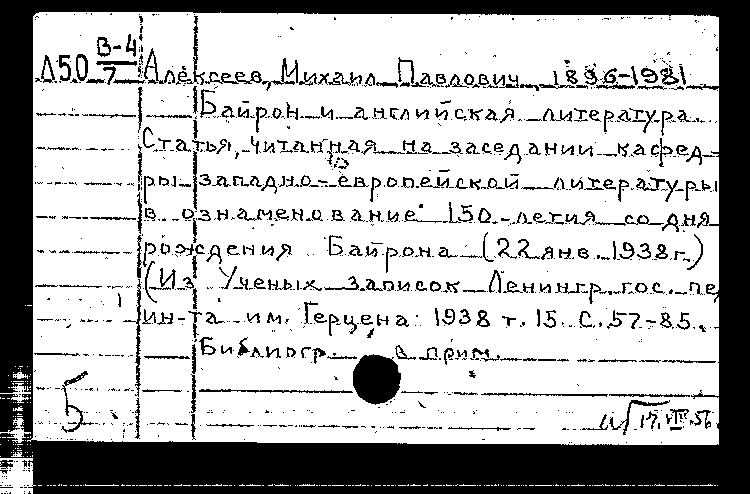 Л50 В-4/7 Алексеев, Михаил Павлович, 1896-1981
Байрон и английская литература.
Статья, читанная на заседании кафед-
ры западно-европейской литературы
в ознаменование 150-летия со дня
рождения Байрона (22 янв. 1938г.)
(Из Ученых записок Ленингр. гос. пе
ин-та им. Герцена 1938 т. 15. С. 57-85.
Библиогр. в прим.
5.
17.VIII.56.